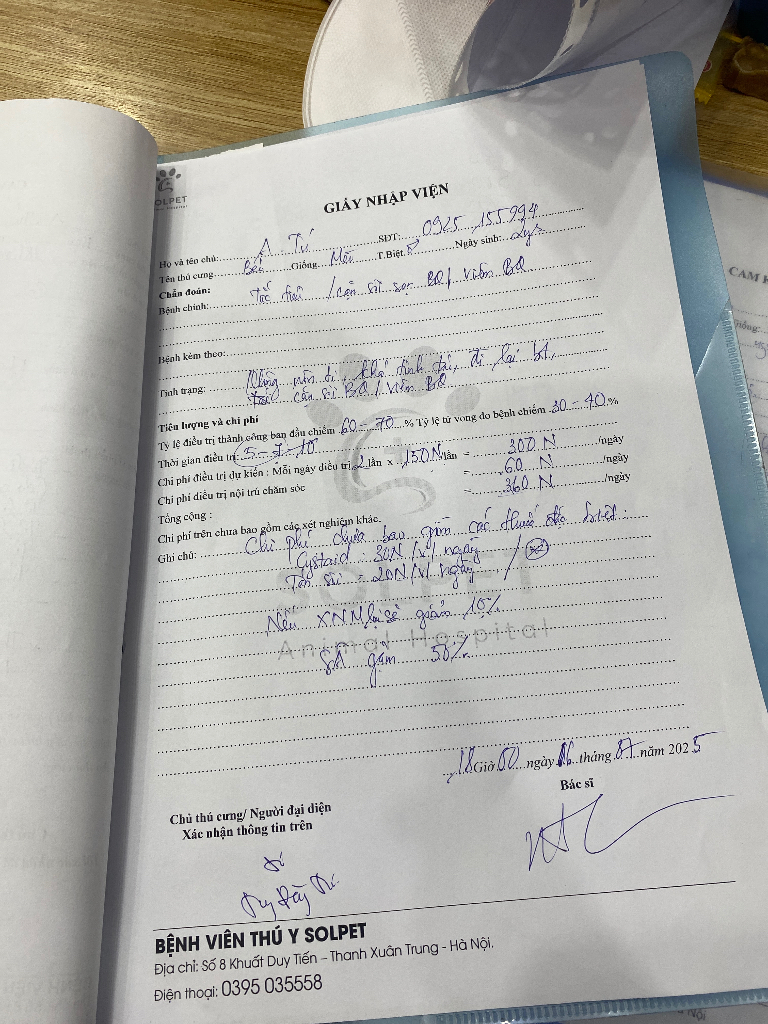 SOLPET
GIẤY NHẬP VIỆN
Họ và tên chủ: A Tú SĐT: 0925 155994
Tên thú cưng Giống Mèo T.Biệt Ngày sinh: 2y
Chẩn đoán:
Bệnh chính: Tắc tiểu / cặn sỏi BQ / viêm BQ
Bệnh kèm theo:
Tình trạng: đi lại bt
cặn sỏi BQ / viêm BQ
Tiên lượng và chi phí
Tỷ lệ điều trị thành công ban đầu chiếm 60 - 70 % Tỷ lệ tử vong do bệnh chiếm 30 - 40 %
Thời gian điều trị 5 - 7 - 10
Chi phí điều trị dự kiến : Mỗi ngày điều trị 2 lần x 150N lần = 300 N /ngày
Chi phí điều trị nội trú chăm sóc = 60 N /ngày
Tổng cộng : = 360 N /ngày
Chi phí trên chưa bao gồm các xét nghiệm khác.
Ghi chú: Chi phí chưa bao gồm các thuốc đặc biệt :
Cystaid : 30N /v/ ngày
Tán sỏi : 20N /v/ ngày
Nếu XNM lại sẽ giảm 10%
SA giảm 50%
SOLPET
Animal Hospital
18 Giờ 50 ngày 16 tháng 07 năm 2025
Bác sĩ
Chủ thú cưng/ Người đại diện
Xác nhận thông tin trên
BỆNH VIÊN THÚ Y SOLPET
Địa chỉ: Số 8 Khuất Duy Tiến – Thanh Xuân Trung - Hà Nội.
Điện thoại: 0395 035558
CAM K
Giống: